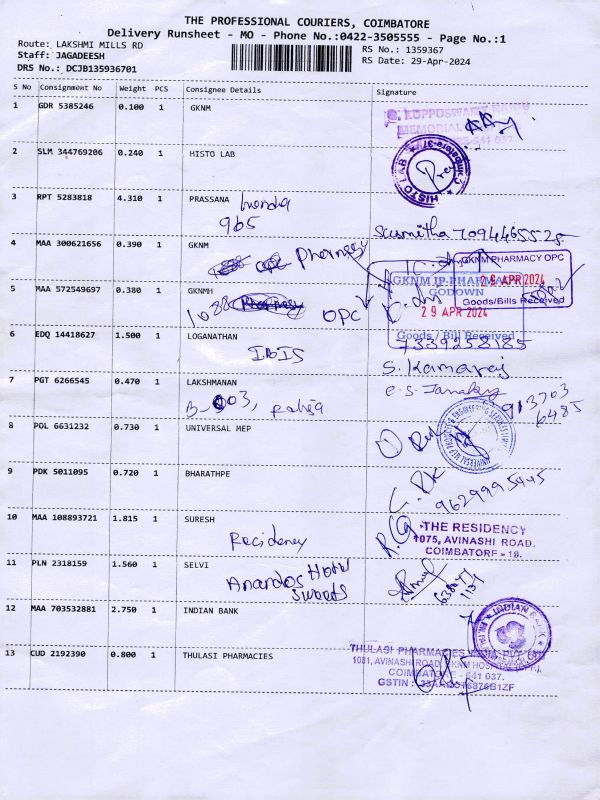 THE PROFESSIONAL COURIERS, COIMBATORE
Delivery Runsheet - MO - Phone No.:0422-3505555 - Page No.:1
Route: LAKSHMI MILLS RD
RS No.: 1359367
Staff: JAGADEESH
RS Date: 29-Apr-2024
DRS No.: DCJB135936701
S No Consignment No Weight PCS Consignee Details Signature
1 GDR 5385246 0.100 1 GKNM
MEMORIAL
2 SLM 344769206 0.240 1 HISTO LAB
HISTO LAB
3 RPT 5283818 4.310 1 PRASSANA
965
7094465525
4 MAA 300621656 0.390 1 GKNM
Pharmacy
GKNM PHARMACY OPC
APR 2024
Goods/Bills Received
5 MAA 572549697 0.380 1 GKNMH
1088 Pharmacy OPC
GKNM IP PHARMACY
GODOWN
29 APR 2024
Goods / Bill Received
6 EDQ 14418627 1.500 1 LOGANATHAN
IBIS
7339258185
S. Kamaraj
7 PGT 6266545 0.470 1 LAKSHMANAN
8 POL 6631232 0.730 1 UNIVERSAL MEP
9 PDK 5011095 0.720 1 BHARATHPE
9629995445
10 MAA 108893721 1.815 1 SURESH
Recidency
THE RESIDENCY
1075, AVINASHI ROAD.
COIMBATORE - 18.
11 PLN 2318159 1.560 1 SELVI
Anandos Hotel
Sweets
12 MAA 703532881 2.750 1 INDIAN BANK
INDIAN BANK
13 CUD 2192390 0.800 1 THULASI PHARMACIES
THULASI PHARMACIES
1081, AVINASHI ROAD, GKNM HOSPITAL
COIMBATORE - 641 037.
GSTIN :